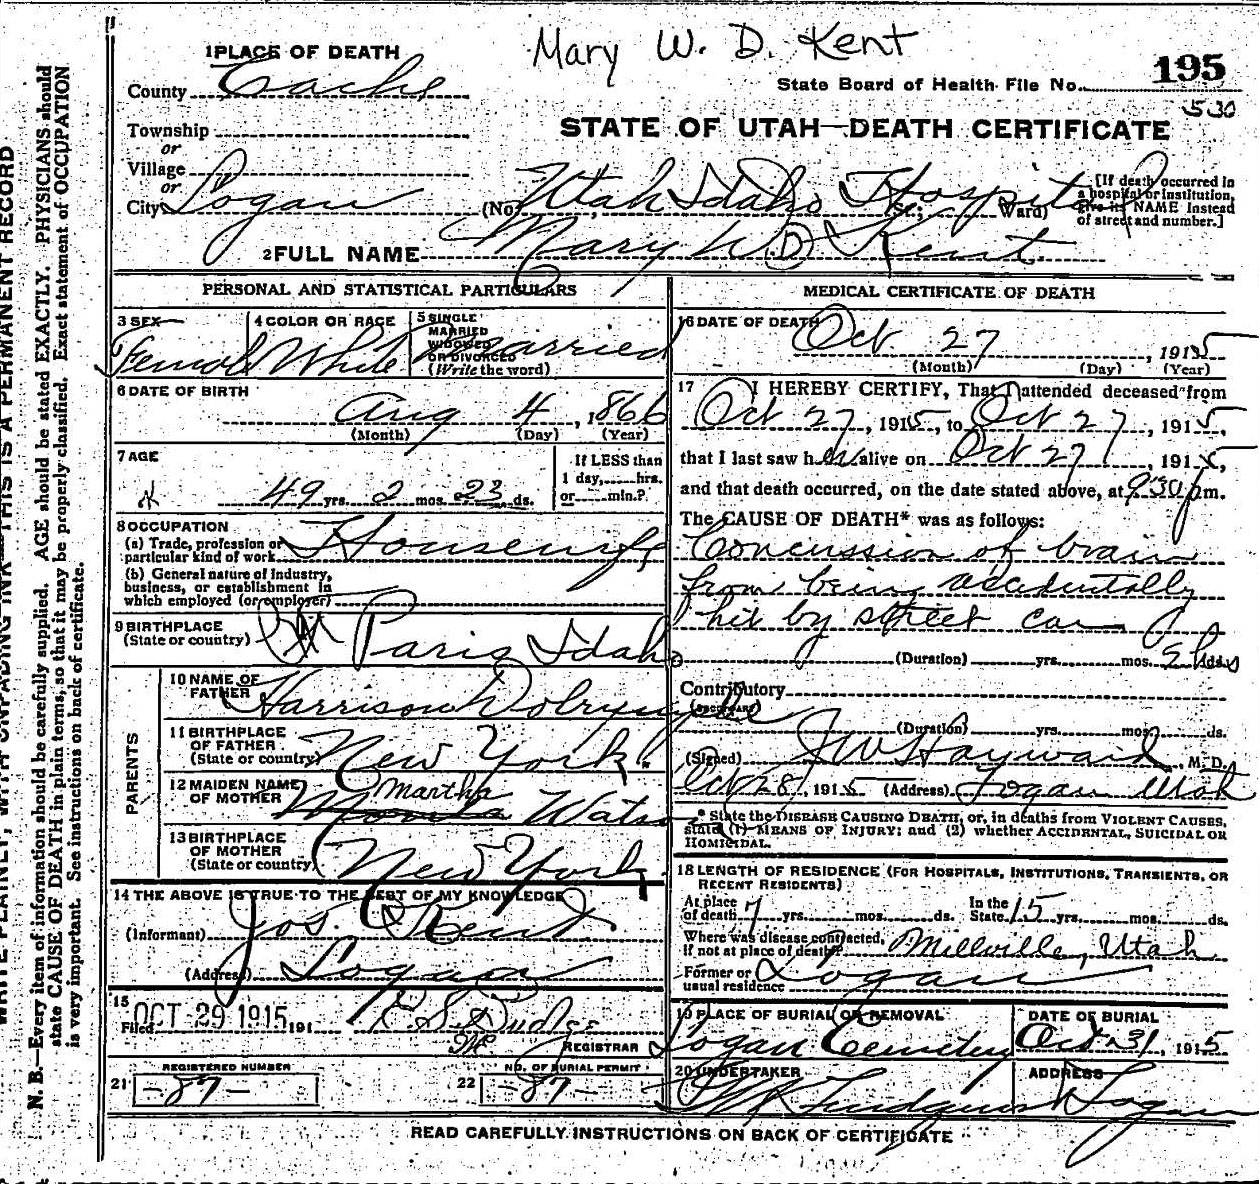 Mary W. D. Kent
1 PLACE OF DEATH
County Cache
State Board of Health File No. 195
530
STATE OF UTAH—DEATH CERTIFICATE
Township
or
Village
or
City Logan (No. Utah Idaho Hospital St.; Ward)
[If death occurred in a hospital or institution, give its NAME instead of street and number.]
2 FULL NAME Mary W D Kent
PERSONAL AND STATISTICAL PARTICULARS
3 SEX Female
4 COLOR OR RACE White
5 SINGLE MARRIED WIDOWED OR DIVORCED (Write the word) Married
6 DATE OF BIRTH
Aug 4, 1866
(Month) (Day) (Year)
7 AGE
49 yrs. 2 mos. 23 ds.
If LESS than 1 day, hrs. or min.?
8 OCCUPATION
(a) Trade, profession or particular kind of work Housewife
(b) General nature of industry, business, or establishment in which employed (or employer)
9 BIRTHPLACE (State or country) Paris Idaho
PARENTS
10 NAME OF FATHER Harrison Dolrymple
11 BIRTHPLACE OF FATHER (State or country) New York.
12 MAIDEN NAME OF MOTHER Martha Watson
13 BIRTHPLACE OF MOTHER (State or country) New York.
14 THE ABOVE IS TRUE TO THE BEST OF MY KNOWLEDGE
(Informant) Jos. Kent
(Address) Logan
15
Filed OCT 29 1915, 191
REGISTRAR
REGISTERED NUMBER
21 -87-
NO. OF BURIAL PERMIT
22 -87-
MEDICAL CERTIFICATE OF DEATH
16 DATE OF DEATH Oct 27, 1915
(Month) (Day) (Year)
17 I HEREBY CERTIFY, That I attended deceased from
Oct 27, 1915, to Oct 27, 1915,
that I last saw her alive on Oct 27, 1915,
and that death occurred, on the date stated above, at 9 30 pm.
The CAUSE OF DEATH* was as follows:
Concussion of brain
from being accidentally
hit by street car
(Duration) yrs. mos. 2 hrs ds
Contributory
(SECONDARY)
(Duration) yrs. mos. ds.
(Signed) J W Hayward, M. D.
Oct 28, 1915 (Address) Logan Utah
* State the DISEASE CAUSING DEATH, or, in deaths from VIOLENT CAUSES,
state (1) MEANS OF INJURY; and (2) whether ACCIDENTAL, SUICIDAL OR
HOMICIDAL.
18 LENGTH OF RESIDENCE (FOR HOSPITALS, INSTITUTIONS, TRANSIENTS, OR
RECENT RESIDENTS)
At place of death 7 yrs. mos. ds. In the State 15 yrs. mos. ds.
Where was disease contracted, if not at place of death? Millville, Utah
Former or usual residence Logan
19 PLACE OF BURIAL OR REMOVAL Logan Cemetery
DATE OF BURIAL Oct 31, 1915
20 UNDERTAKER
ADDRESS Logan
READ CAREFULLY INSTRUCTIONS ON BACK OF CERTIFICATE
WRITE PLAINLY, WITH UNFADING INK—THIS IS A PERMANENT RECORD
N. B.—Every item of information should be carefully supplied. AGE should be stated EXACTLY. PHYSICIANS should
state CAUSE OF DEATH in plain terms, so that it may be properly classified. Exact statement of OCCUPATION
is very important. See instructions on back of certificate.